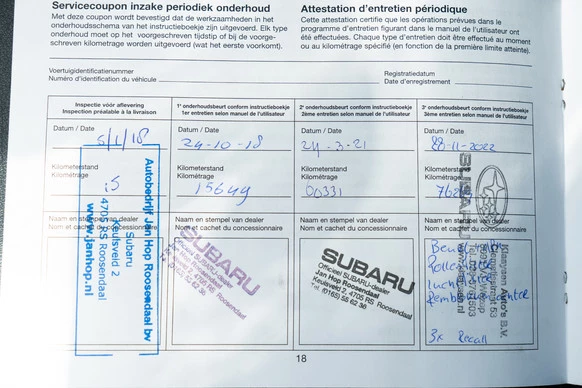 Servicecoupon inzake periodiek onderhoud
Met deze coupon wordt bevestigd dat de werkzaamheden in het
onderhoudsschema van het instructieboekje zijn uitgevoerd. Elk type
onderhoud moet op het voorgeschreven tijdstip of bij de voorge-
schreven kilometrage worden uitgevoerd (wat het eerste voorkomt).
Attestation d'entretien périodique
Cette attestation certifie que les opérations prévues dans le
programme d'entretien figurant dans le manuel de l'utilisateur ont
été effectuées. Chaque type d'entretien doit être effectué au moment
ou au kilométrage spécifié (en fonction de la première limite atteinte).
Voertuigidentificatienummer
Numéro d'identification du véhicule
Registratiedatum
Date d'enregistrement
Inspectie vóór aflevering
Inspection préalable à la livraison
Datum / Date
5/1/18
Kilometerstand
Kilométrage
15
Naam en stempel van dealer
Nom et cachet du concessionnaire
Autobedrijf Jan Hop Roosendaal bv
Subaru
Keulsveld 2
4705 RS Roosendaal
www.janhop.nl
1e onderhoudsbeurt conform instructieboekje
1er entretien selon manuel de l'utilisateur
Datum / Date
24-10-18
Kilometerstand
Kilométrage
15649
Naam en stempel van dealer
Nom et cachet du concessionnaire
SUBARU
Officieel SUBARU-dealer
Jan Hop Roosendaal
Keulsveld 2, 4705 RS Roosendaal
2e onderhoudsbeurt conform instructieboekje
2ème entretien selon manuel de l'utilisateur
Datum / Date
24-3-21
Kilometerstand
Kilométrage
60331
Naam en stempel van dealer
Nom et cachet du concessionnaire
SUBARU
Officieel SUBARU-dealer
Jan Hop Roosendaal
Keulsveld 2, 4705 RS Roosendaal
Tel. (0165) 56 62 36
3e onderhoudsbeurt conform instructieboekje
3ème entretien selon manuel de l'utilisateur
Datum / Date
28-11-2022
Kilometerstand
Kilométrage
Naam en stempel van dealer
Nom et cachet du concessionnaire
SUBARU
Auto's B.V.
3x Recall
18